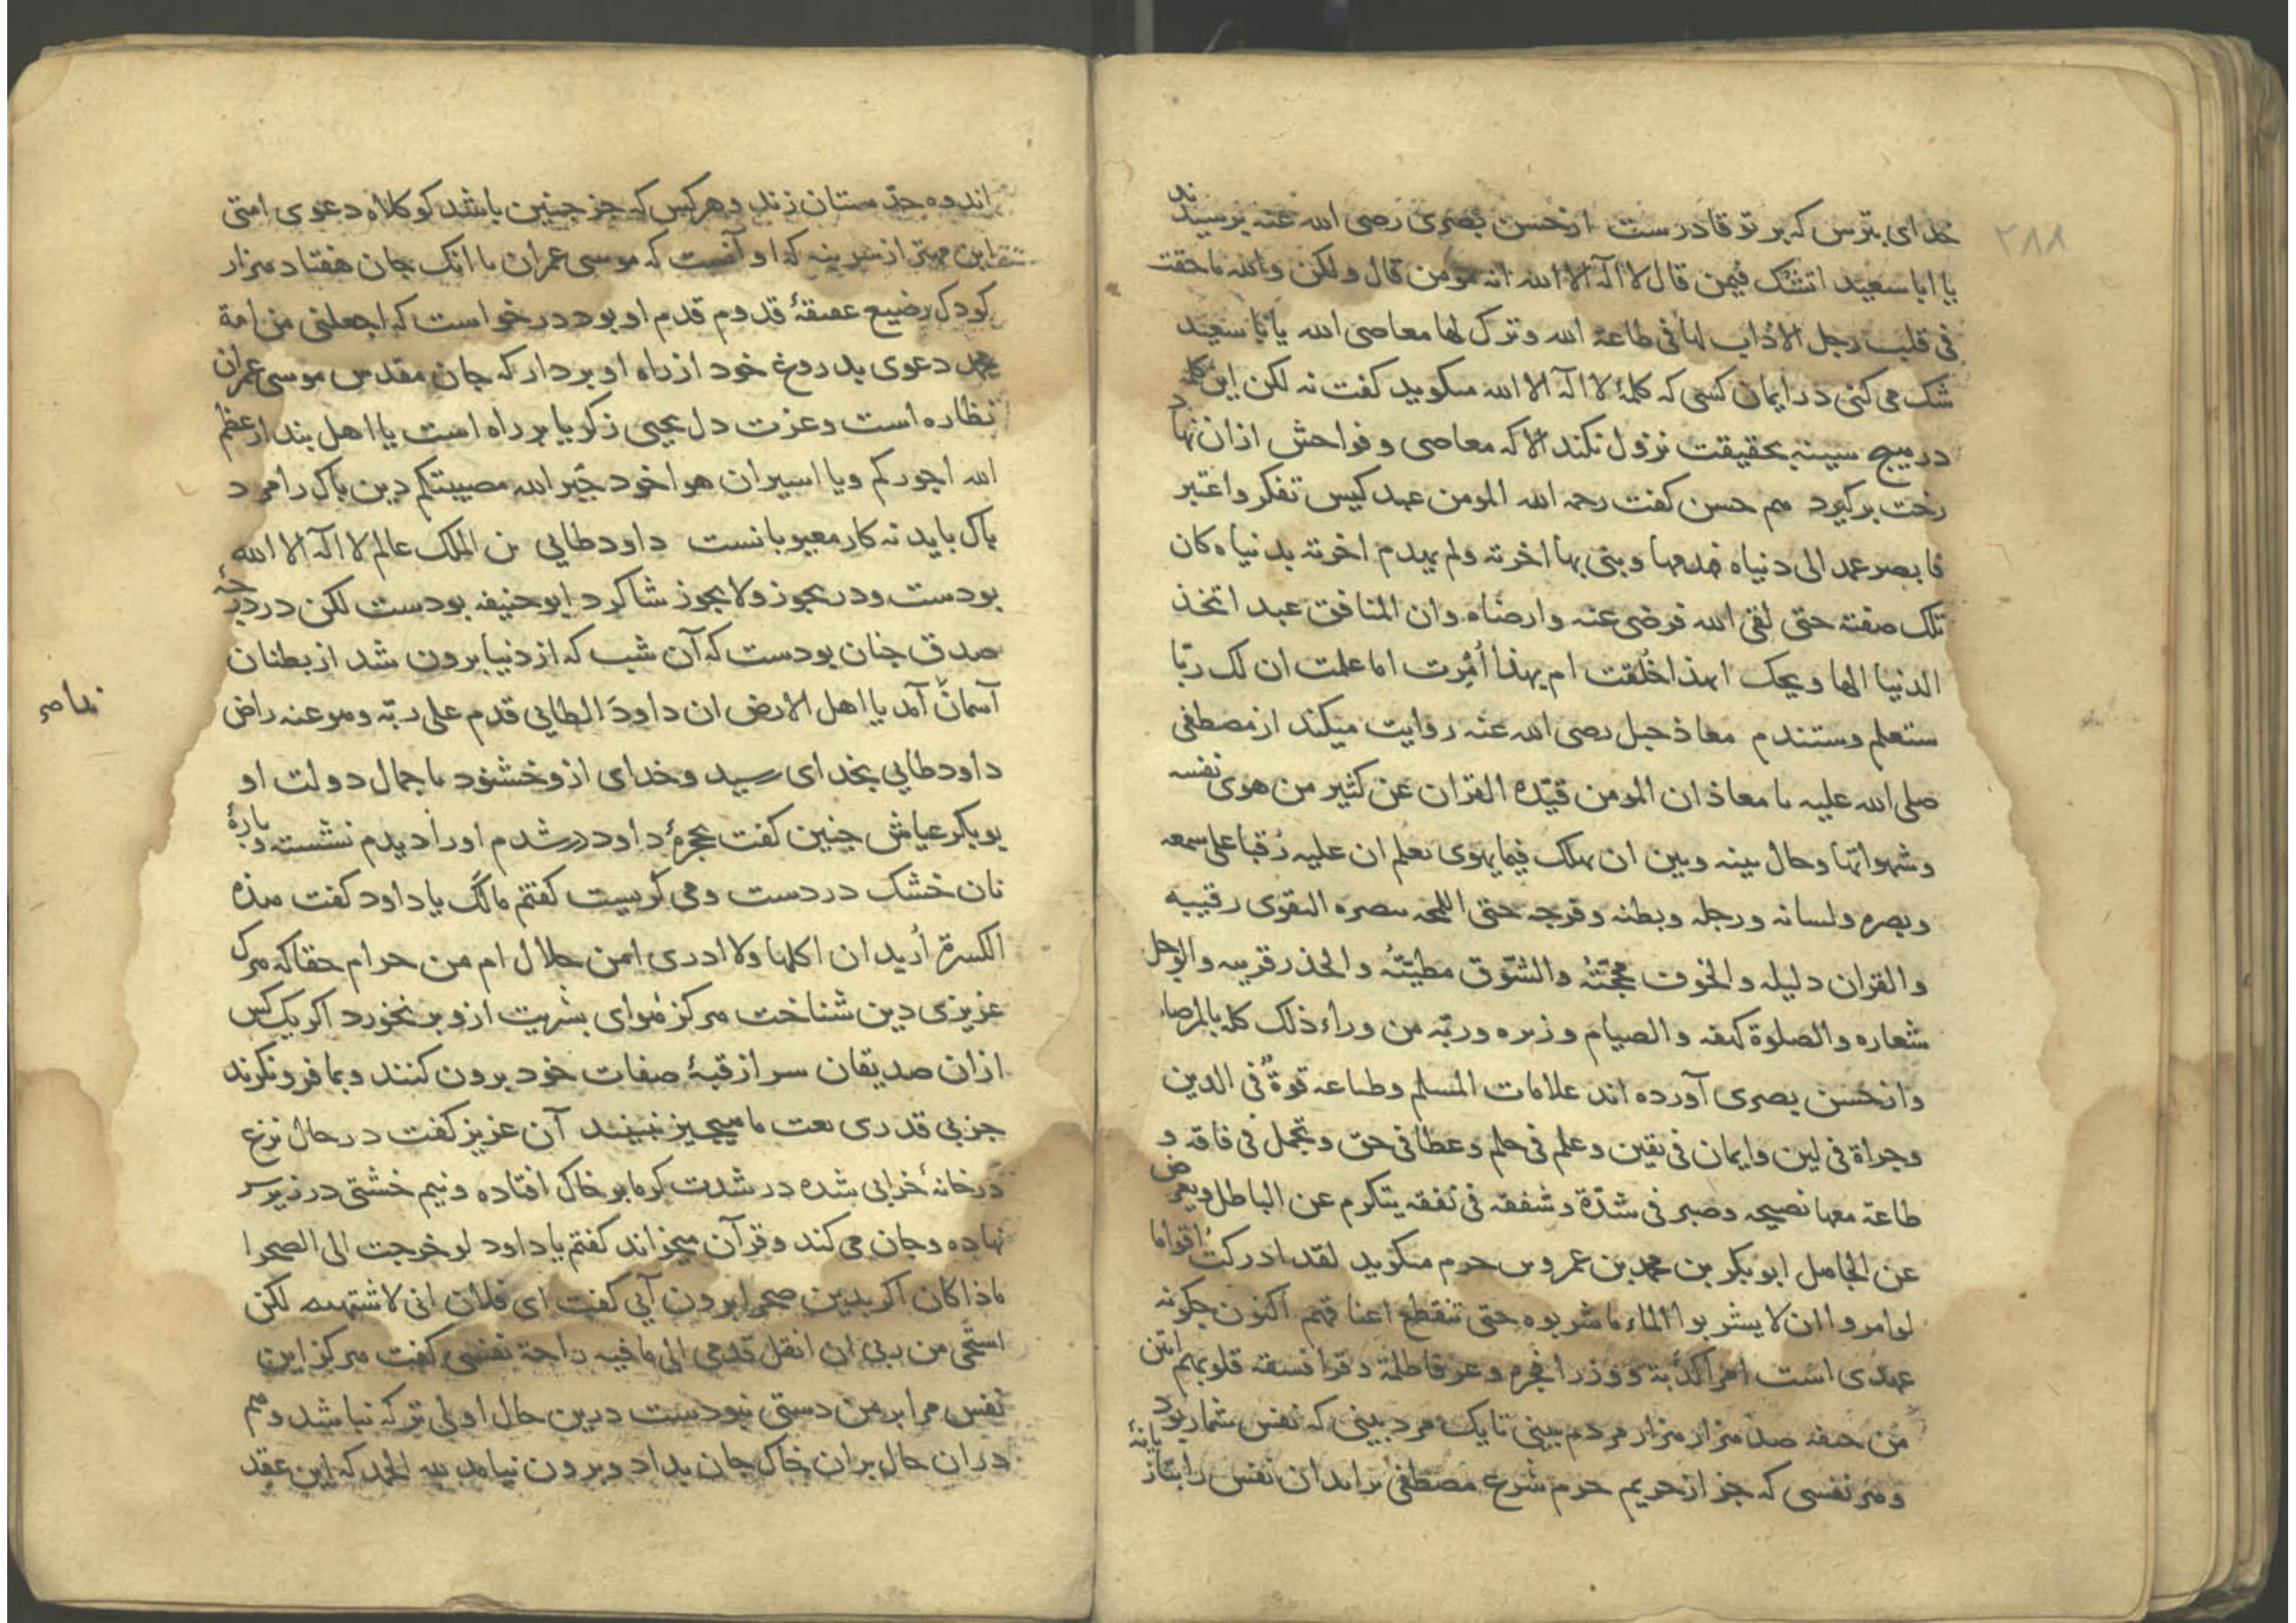 ۲۸۸
خدای بترس که بر تو قادرست از حسن بصری رضی الله عنه پرسیدند
یا ابا سعید اتشک فیمن قال لا اله الا الله انه مومن قال و لکن والله ما حقت
فی قلب رجل الا ذاب لها فی طاعة الله و ترک لها معاصی الله یا با سعید
شک می کنی در ایمان کسی که کلمهٔ لا اله الا الله میکوید کفت نه لکن این کلمه
در هیچ سینه بحقیقت نزول نکند الا که معاصی و فواحش از ان نهاد
رخت برکیرد هم حسن کفت رحمه الله المومن عبد کیس تفکر واعتبر
فابصر عمد الی دنیاه فهدمها و بنی بها اخرته ولم یهدم اخرته بدنیاه کان
تلک صفته حتی لقی الله فرضی عنه وارضاه وان المنافق عبد اتخذ
الدنیا الها ویحک الهذا خُلقت ام بهذا اُمِرت اما علمت ان لک ربّا
ستعلم وستندم معاذ جبل رضی الله عنه روایت میکند از مصطفی
صلی الله علیه یا معاذ ان المومن قیّده القران عن کثیر من هوی نفسه
وشهواتها وحال بینه وبین ان یهلک فیما یهوی یعلم ان علیه رُقبا علی سمعه
وبصره ولسانه ورجله وبطنه وفرجه حتی اللمحه ببصره التقوی رقیبه
والقران دلیله والخوف محجّتُه والشوق مطیّتُه والحذر قرینه والوجل
شعاره والصلوة کهفه والصیام وزیره وربّه من وراء ذلک کله بالمرصاد
واز حسن بصری آورده اند علامات المسلم وطباعه قوةٌ فی الدین
وجراة فی لین وایمان فی یقین وعلم فی حلم وعطا فی حق وتجمل فی فاقه و
طاعة معها نصیحه وصبر فی شدّة وشفقه فی نفقه یتکرم عن الباطل ویعرض
عن الجاهل ابوبکر بن محمد بن عمرو بن حزم میکوید لقد ادرکت اقواما
لو امروا ان لا یشربوا الماء ما شربوه حتی تنقطع اعناقهم اکنون چکونه
عهدی است امرا کذبة ووزرا فجره وعرفا ظلمة وقرا فسقه قلوبهم انتن
من جیفه صد هزار هزار مردم بینی تا یک مرد بینی که نفس شمار بود
و هر نفسی که جز از حریم حرم شرع مصطفی براید ان نفس را بتازیانهٔ
اندوه حدّ مستان زند و هر کس که جز چنین باشد کو کلاه دعوی امتی
این مهتر از سر بنه که او آنست که موسی عمران با انک جان هفتاد هزار
کودک رضیع عقیقهٔ قدوم قدم او بود درخواست که اجعلنی من امة
محمد دعوی بدروغ خود از راه او بردار که جان مقدس موسی عمران
نظاره است وعزت دل یحیی زکریا بر راه است یا اهل بندار عظم
الله اجورکم ویا اسیران هوا خود جَبَر الله مصیبتکم دین پاک را مرد
پاک باید نه کار معیوبانست داود طایی من الملک عالم لا اله الا الله
بودست ودر یجوز ولا یجوز شاکرد ابوحنیفه بودست لکن در درجهٔ
صدق چنان بودست که آن شب که از دنیا برون شد از بطنان
آسمان آمد یا اهل الارض ان داودَ الطایی قدم علی ربّه وهو عنه راض
ندا صح
داود طایی بخدای رسید وخدای ازو خشنود با جمال دولت او
بوبکر عیاش چنین کفت بحجرهٔ داود درشدم او را دیدم نشسته و پارهٔ
نان خشک در دست و می کریست کفتم مالک یا داود کفت هذه
الکسرة اُرید ان اکلها ولا ادری امن حلال ام من حرام حقا که هرک
عزیزی دین شناخت هرکز هوای بشریت ازو بر نخورد اکر یک کس
از ان صدیقان سر از قبهٔ صفات خود برون کنند و بما فرونکرند
جز بی قدری ما هیچیز نبینند آن عزیز کفت در حال نزع
در خانهٔ خرابی شده در شدت کرما بر خاک افتاده و نیم خشتی در زیر سر
نهاده وجان می کند وقرآن میخواند کفتم یا داود لو خرجت الی الصحرا
ماذا کان اکر بدین صحرا برون آیی کفت ای فلان انی لاشتهیه لکن
استحی من ربی ان انقل قدمی الی ما فیه راحة نفسی کفت هرکز این
نفس مرا بر من دستی نبودست درین حال اولی تر که نباشد وهم
دران حال بران خاک جان بداد وبرون نیامد لله الحمد که این عقد